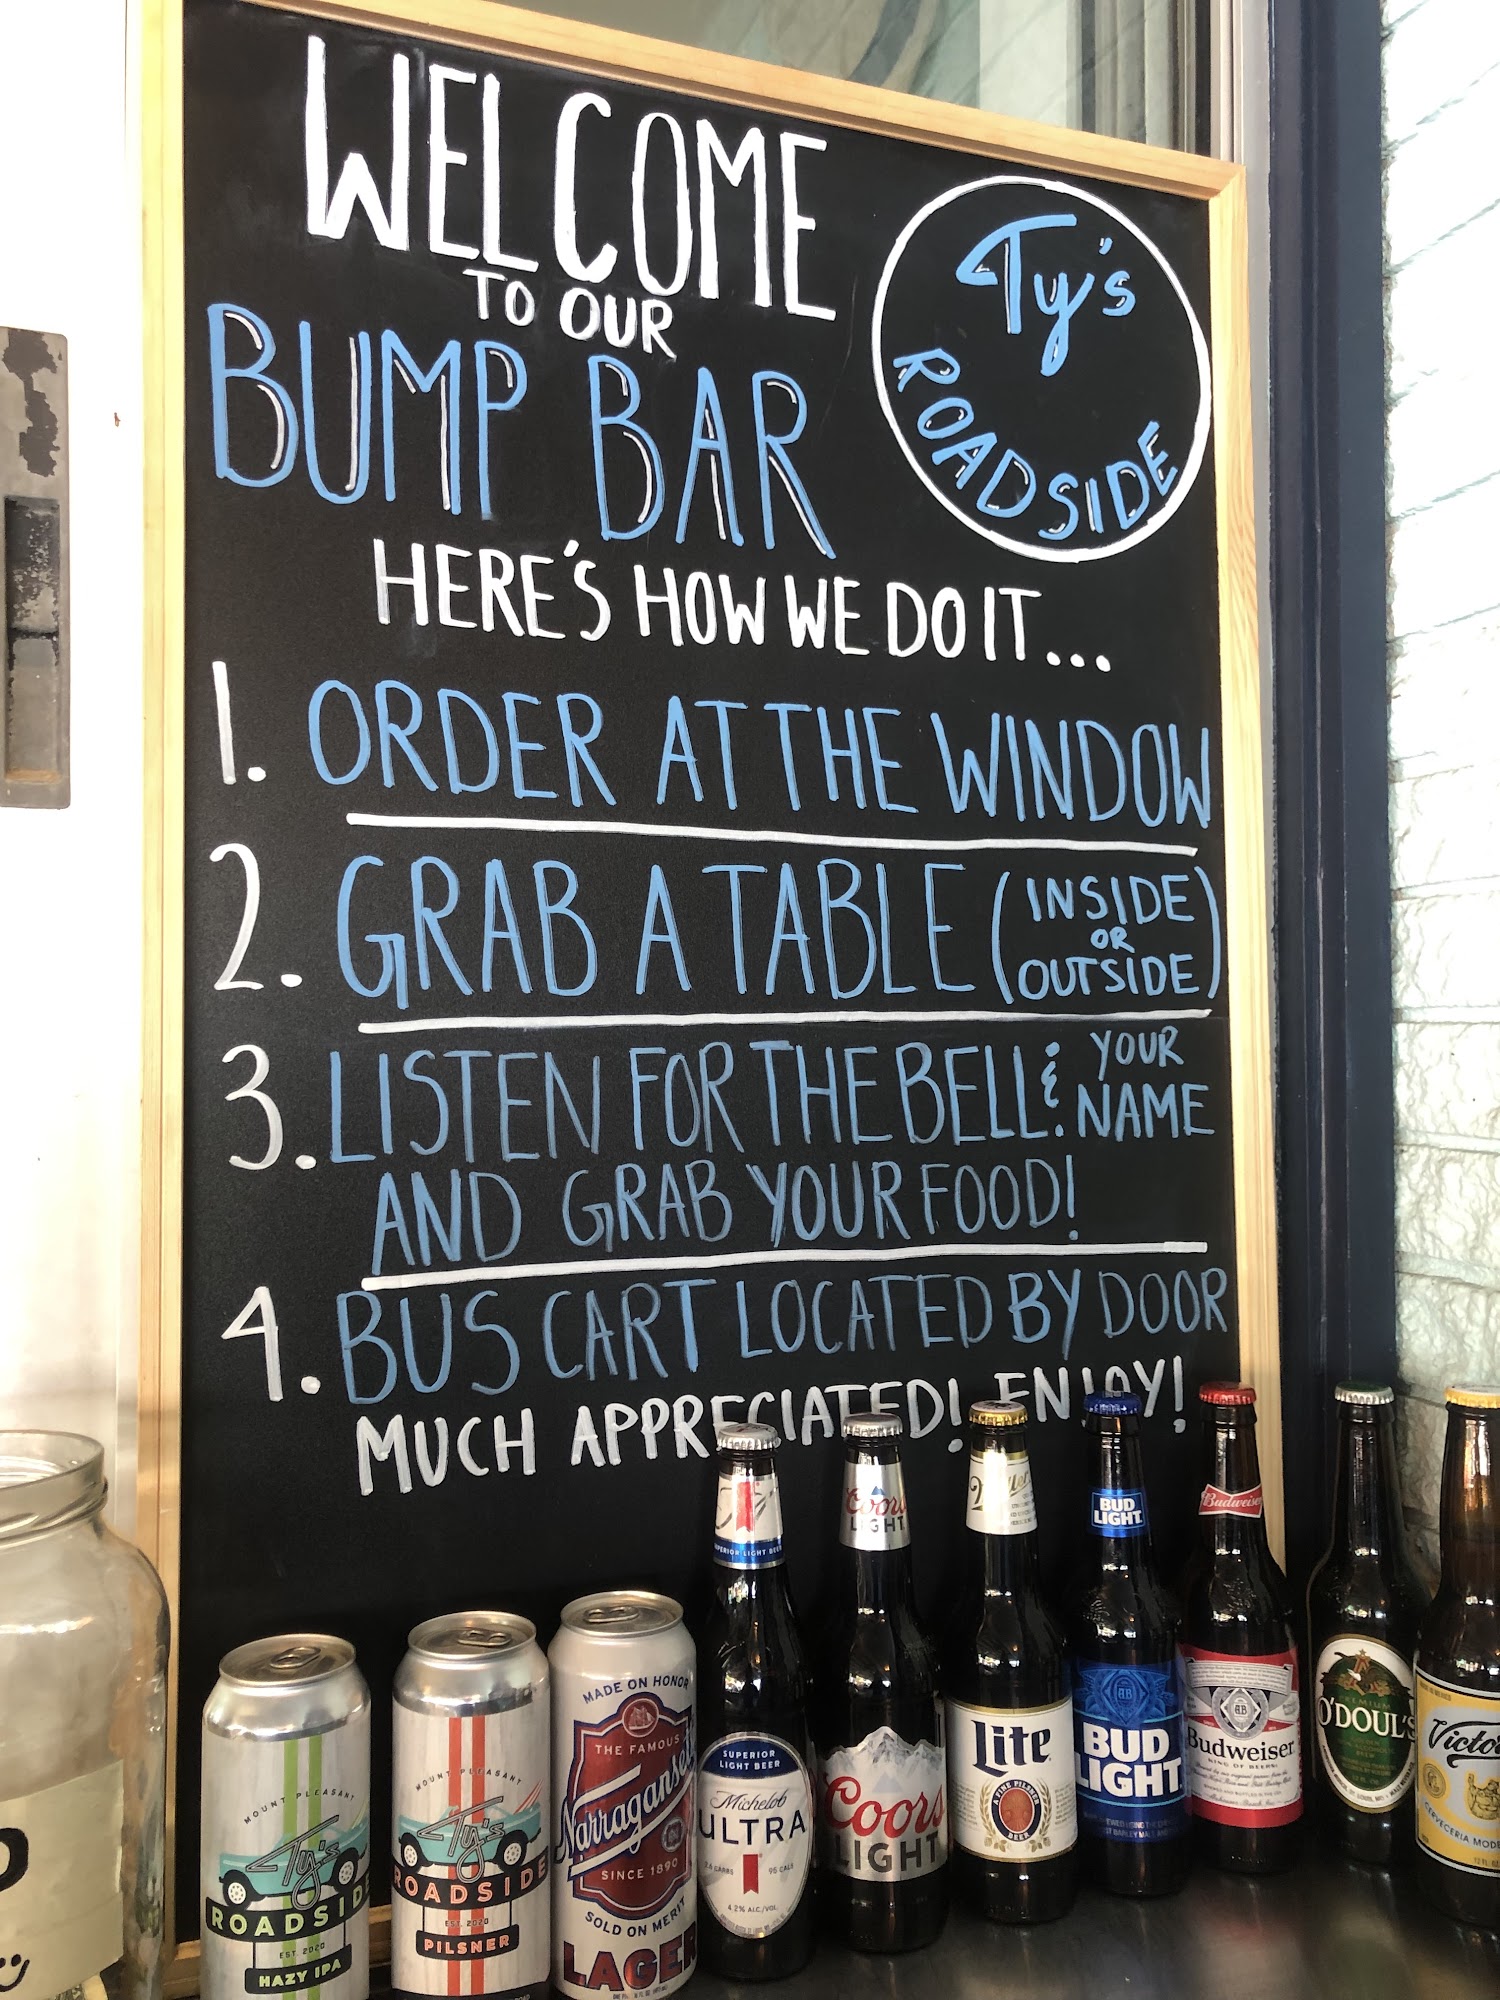 WELCOME
TO OUR
BUMP BAR
Ty's
ROADSIDE
HERE'S HOW WE DO IT...
1. ORDER AT THE WINDOW
2. GRAB A TABLE (INSIDE OR OUTSIDE)
3. LISTEN FOR THE BELL & YOUR NAME
AND GRAB YOUR FOOD!
4. BUS CART LOCATED BY DOOR
MUCH APPRECIATED! ENJOY!
MOUNT PLEASANT
Ty's
ROADSIDE
EST. 2020
HAZY IPA
MOUNT PLEASANT
Ty's
ROADSIDE
EST. 2020
PILSNER
MADE ON HONOR
THE FAMOUS
Narragansett
SINCE 1890
SOLD ON MERIT
LAGER
SUPERIOR LIGHT BEER
SUPERIOR
LIGHT BEER
Michelob
ULTRA
2.6 CARBS 95 CALS
4.2% ALC./VOL.
Coors
LIGHT
Coors
LIGHT
Miller
Lite
A FINE PILSNER
BEER
BUD
LIGHT
BUD
LIGHT
Budweiser
Budweiser
KING OF BEERS
PREMIUM
O'DOUL'S
Victo
CERVECERIA MODE